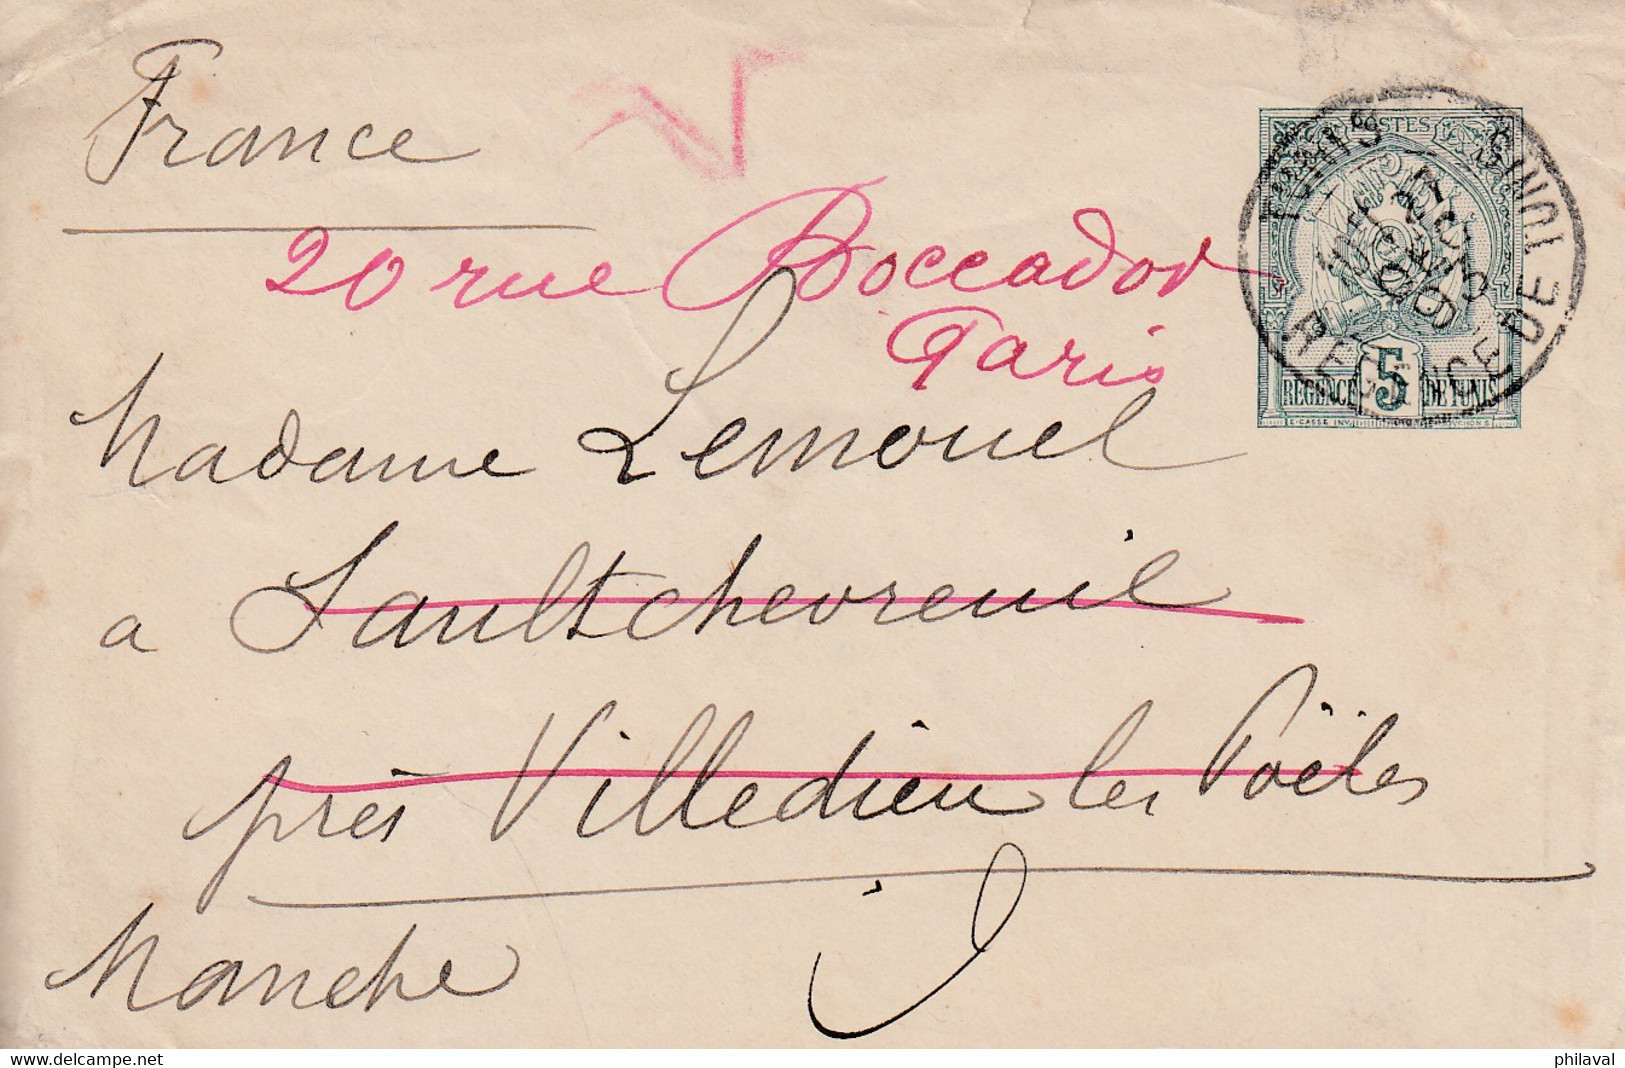 France
20 rue Boccador
Paris
Madame Lemouel
a Saultchevreuil
près Villedieu les Poëles
Manche
POSTES
5
REGENCE DE TUNIS
TUNIS
REGENCE DE TUNIS
www.delcampe.net
philaval